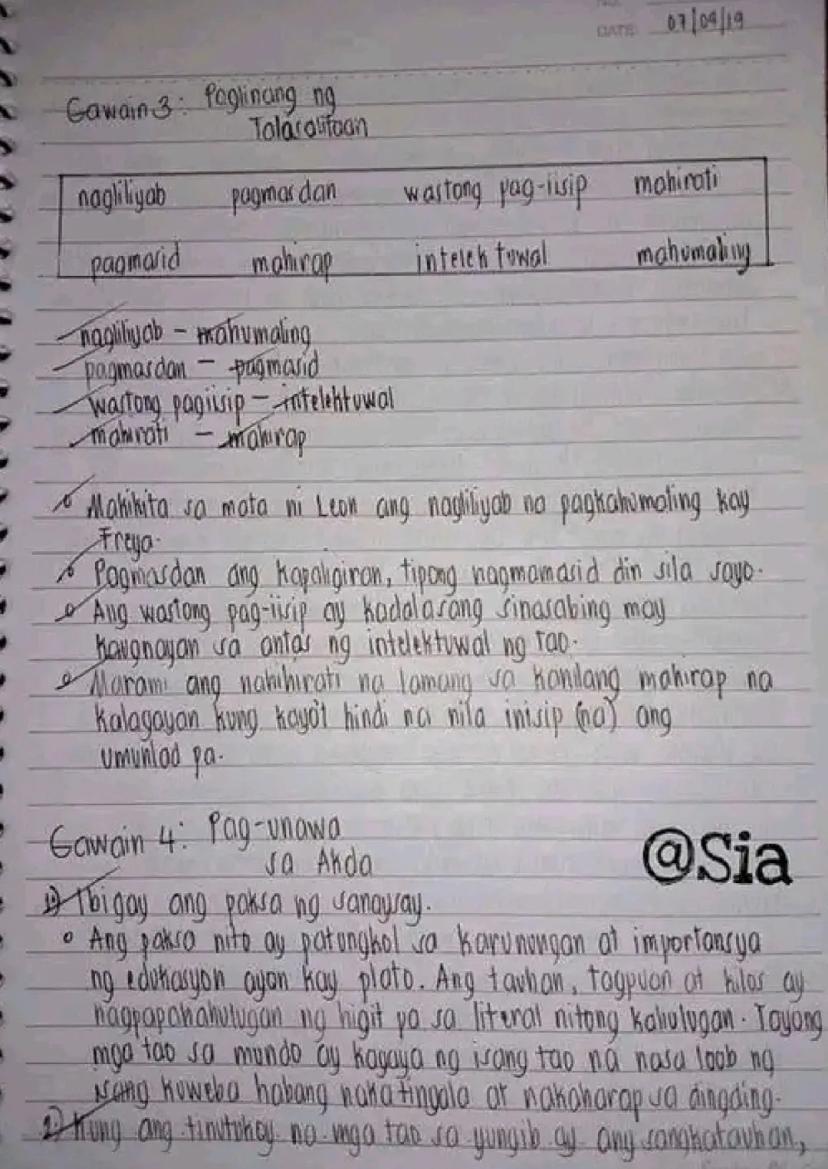 DATE 07/09/19
Gawain 3: Paglinang ng
Talasalitaan
nagliliyab pagmasdan wastong pag-iisip mahirati
pagmasid mahirap intelektuwal mahumaling
nagliliyab - mahumaling
pagmasdan - pagmasid
wastong pagiisip - intelektuwal
mahirati - mahirap
Makikita sa mata ni Leon ang nagliliyab na pagkahumaling kay
Freya.
Pagmasdan ang kapaligiran, tipong nagmamasid din sila sayo.
Ang wastong pag-iisip ay kadalasang sinasabing may
kaugnayan sa antas ng intelektuwal ng tao.
Marami ang nahihirati na lamang sa kanilang mahirap na
kalagayan kung kaya't hindi na nila inisip (na) ang
umunlad pa.
Gawain 4: Pag-unawa
sa Akda
@Sia
1) Ibigay ang paksa ng sanaysay.
Ang paksa nito ay patungkol sa karunungan at importansya
ng edukasyon ayon kay plato. Ang tauhan, tagpuan at kilos ay
nagpapakahulugan ng higit pa sa literal nitong kahulugan. Tayong
mga tao sa mundo ay kagaya ng isang tao na nasa loob ng
isang kuweba habang nakatingala at nakaharap sa dingding.
2) Kung ang tinutukoy na mga tao sa yungib ay ang sangkatauhan,